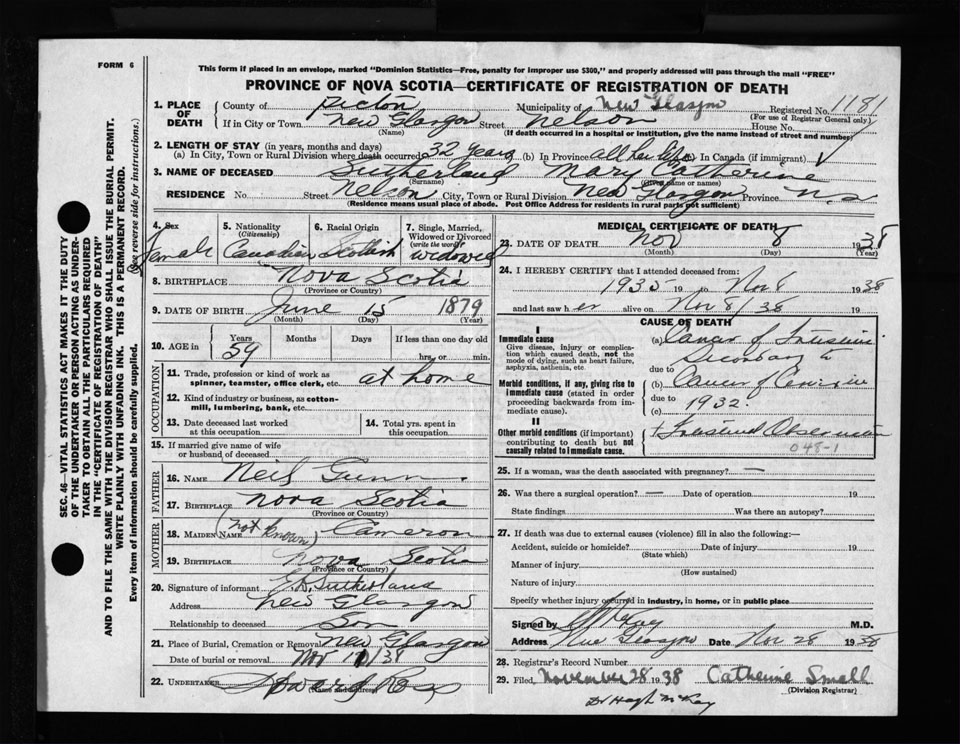 FORM 6
This form if placed in an envelope, marked "Dominion Statistics—Free, penalty for improper use $300," and properly addressed will pass through the mail "FREE"
PROVINCE OF NOVA SCOTIA—CERTIFICATE OF REGISTRATION OF DEATH
1. PLACE OF DEATH
County of Pictou Municipality of New Glasgow Registered No. 1181
(For use of Registrar General only)
If in City or Town New Glasgow Street Nelson House No.
(Name) (If death occurred in a hospital or institution, give the name instead of street and number)
2. LENGTH OF STAY (in years, months and days)
(a) In City, Town or Rural Division where death occurred 32 years (b) In Province all her life (c) In Canada (if immigrant)
3. NAME OF DECEASED Sutherland Mary Catherine
(Surname) (Given name or names)
RESIDENCE No. Street Nelson City, Town or Rural Division New Glasgow Province N.S
(Residence means usual place of abode. Post Office Address for residents in rural parts not sufficient)
4. Sex Female
5. Nationality (Citizenship) Canadian
6. Racial Origin Scottish
7. Single, Married, Widowed or Divorced (write the word) Widowed
8. BIRTHPLACE Nova Scotia
(Province or Country)
9. DATE OF BIRTH June 15 1879
(Month) (Day) (Year)
10. AGE in Years Months Days If less than one day old
59 hrs. or min.
OCCUPATION
11. Trade, profession or kind of work as spinner, teamster, office clerk, etc. at home
12. Kind of industry or business, as cotton-mill, lumbering, bank, etc.
13. Date deceased last worked at this occupation
14. Total yrs. spent in this occupation
15. If married give name of wife or husband of deceased
FATHER
16. NAME Neil Gunn
17. BIRTHPLACE Nova Scotia
(Province or Country)
MOTHER
18. MAIDEN NAME (not known) Cameron
19. BIRTHPLACE Nova Scotia
(Province or Country)
20. Signature of informant Sutherland
Address New Glasgow
Relationship to deceased Son
21. Place of Burial, Cremation or Removal New Glasgow
Date of burial or removal Nov 11/38
22. UNDERTAKER
(Name and address)
MEDICAL CERTIFICATE OF DEATH
23. DATE OF DEATH Nov 8 1938
(Month) (Day) (Year)
24. I HEREBY CERTIFY that I attended deceased from:
1935 19 to Nov 8 1938
and last saw her alive on Nov 8/38 19
CAUSE OF DEATH
I
Immediate cause
Give disease, injury or complication which caused death, not the mode of dying, such as heart failure, asphyxia, asthenia, etc.
(a) Cancer of Intestine
Secondary to
due to
Morbid conditions, if any, giving rise to immediate cause (stated in order proceeding backwards from immediate cause).
(b) Cancer of
due to 1932.
(c)
II
Other morbid conditions (if important) contributing to death but not causally related to immediate cause.
Intestinal
048-1
25. If a woman, was the death associated with pregnancy? —
26. Was there a surgical operation? — Date of operation 19
State findings Was there an autopsy?
27. If death was due to external causes (violence) fill in also the following:—
Accident, suicide or homicide? Date of injury 19
(State which)
Manner of injury
(How sustained)
Nature of injury
Specify whether injury occurred in industry, in home, or in public place
Signed by M.D.
Address New Glasgow Date Nov 28 1938
28. Registrar's Record Number
29. Filed, November 28 1938 Catherine Small
(Division Registrar)
Dr Hugh McKay
SEC. 46—VITAL STATISTICS ACT MAKES IT THE DUTY
OF THE UNDERTAKER OR PERSON ACTING AS UNDER-
TAKER TO OBTAIN ALL THE PARTICULARS REQUIRED
IN THE "CERTIFICATE OF REGISTRATION OF DEATH"
AND TO FILE THE SAME WITH THE DIVISION REGISTRAR WHO SHALL ISSUE THE BURIAL PERMIT.
WRITE PLAINLY WITH UNFADING INK. THIS IS A PERMANENT RECORD.
Every item of information should be carefully supplied. (See reverse side for instructions.)